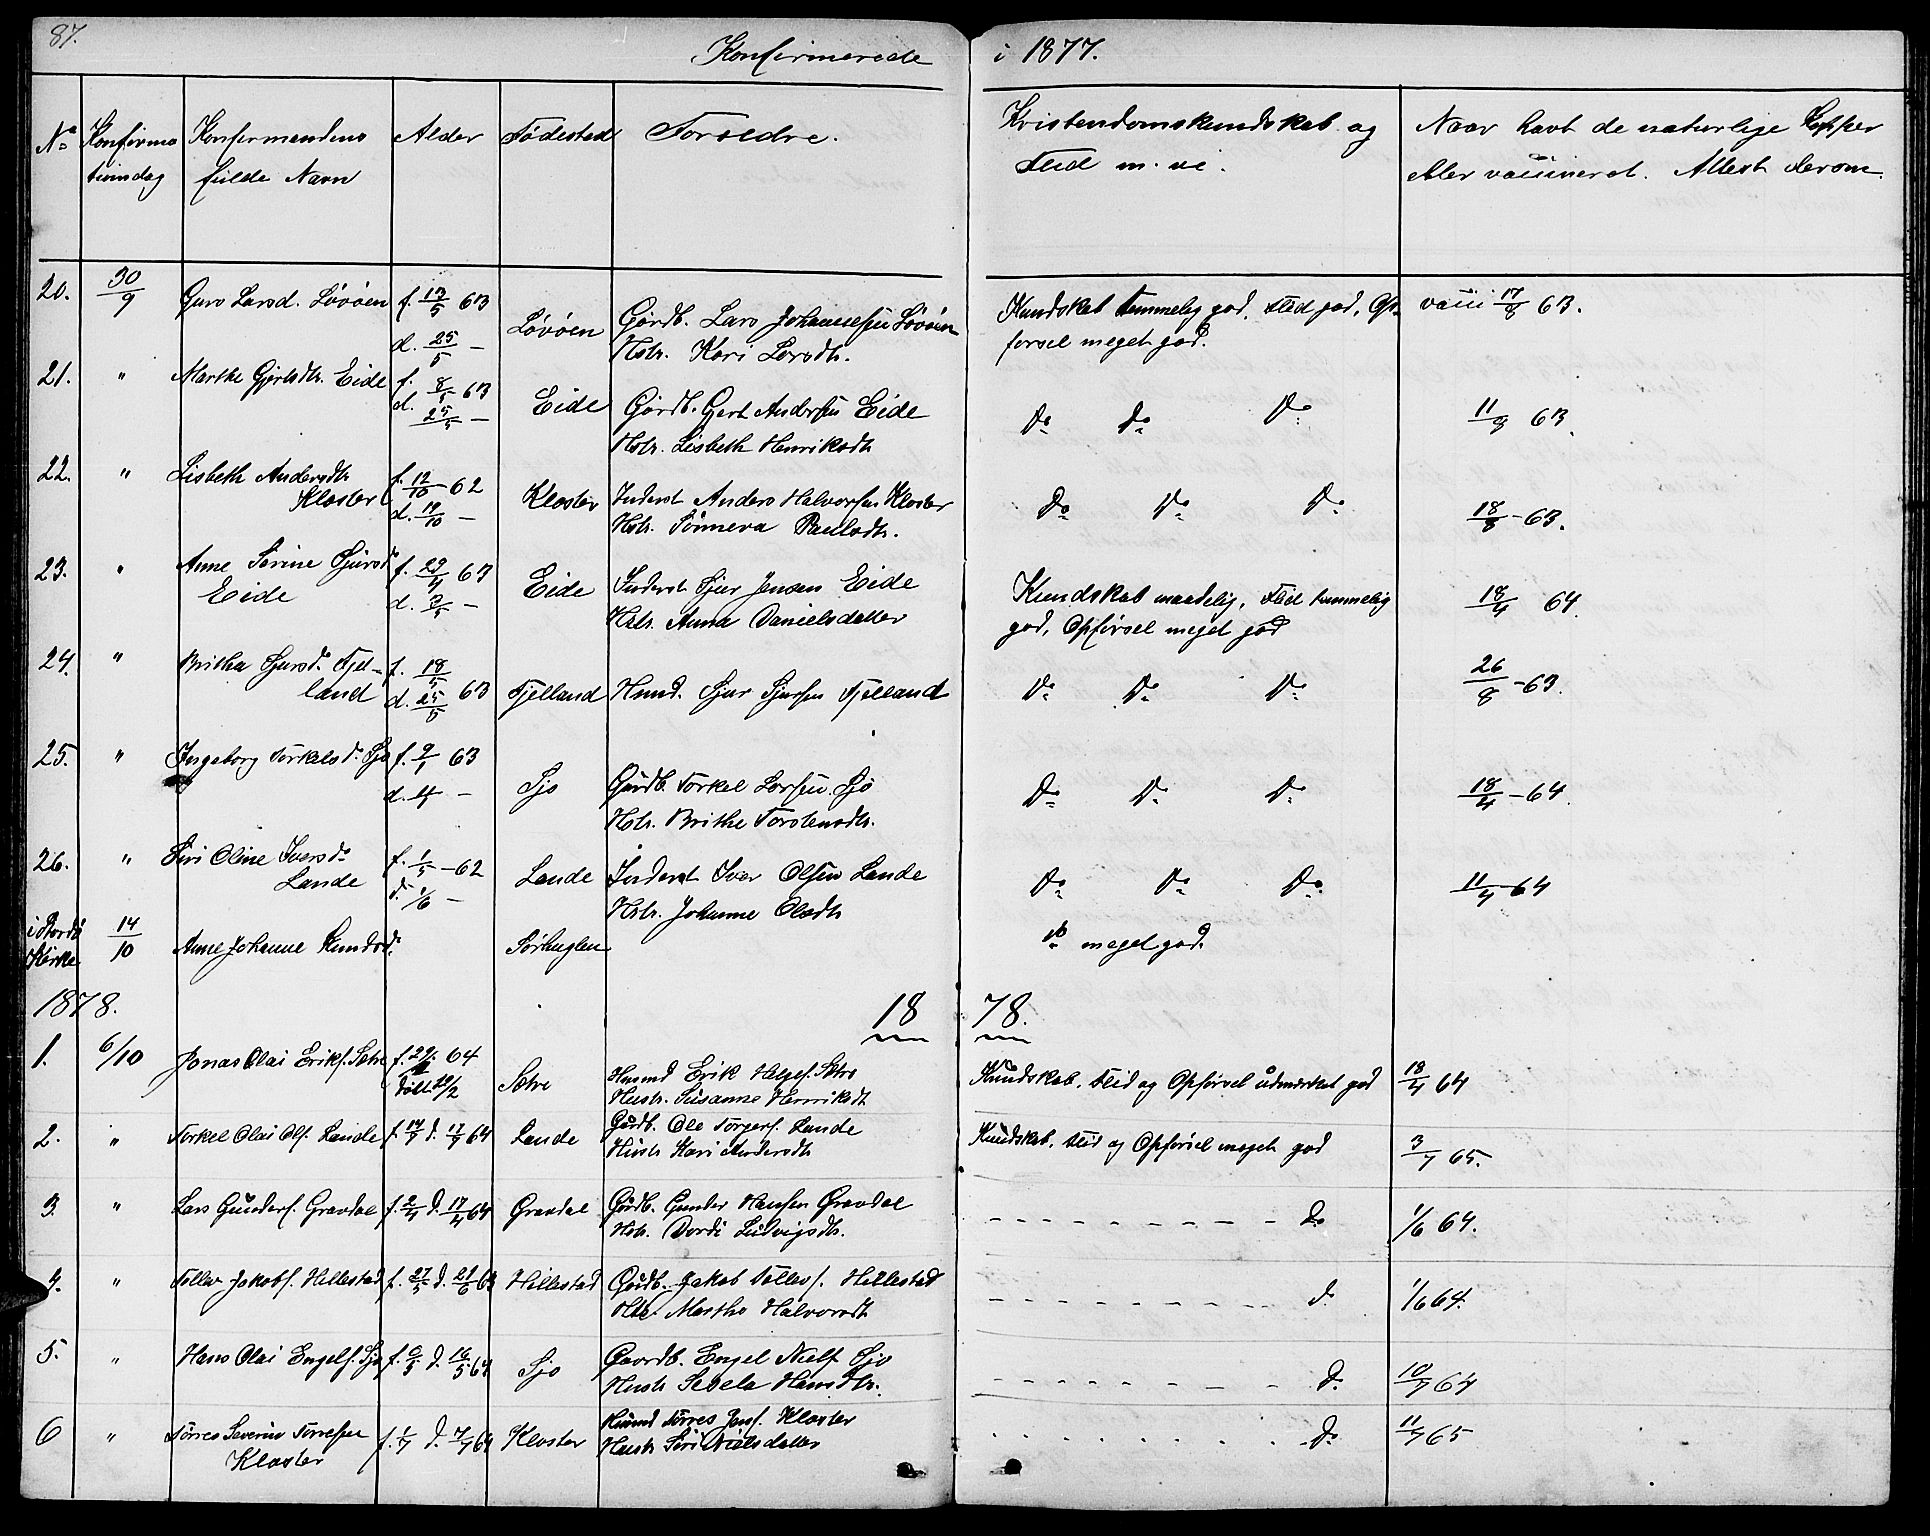 87.
Konfirmerede i 1877.
No Konfirma tionsdag Konfirmandens fulde Navn Alder Födestad Foreldre. Kristendomskundskab og Flid m. vi. Naar havt de naturlige Kopper eller vaccineret. Attest derom.
20. 30/9 Guro Larsd. Lövöen f. 13/5 63 d. 25/5 — Lövöen Gårdb. Lars Johannesen Lövöen
Hstr. Kari Larsdtr.
Kundskab temmelig god, Flid god, Op-
førsel meget god.
vacci 17/8 63.
21. " Marthe Gjertsdtr. Eide f. 8/5 63 d. 25/5 — Eide Gårdb. Gjert Andersen Eide
Hstr. Lisbeth Henriksdtr
Do Do Do 11/9 63.
22. " Lisbeth Andersdtr
Kloster f. 12/10 - 62 d. 19/10 — Kloster Inderst Anders Halvorsen Kloster
Hstr. Sönneva Paulsdtr.
Do Do Do 18/8 - 63.
23. " Anne Serine Sjursd
Eide f. 29/4 63 d. 3/5 — Eide Inderst Sjur Jensen Eide
Hstr. Anna Danielsdatter
Kundskab maadelig, Flid temmelig
god, Opförsel meget god
18/4 64.
24. " Britha Sjursd. Fjel-
land f. 18/5 d. 25/5 63 Fjelland Husmd. Sjur Sjursen Fjelland
Do Do Do 26/8 - 63.
25. " Ingeborg Torkelsd. Sjo f. 9/1 63 d. 4 — Sjo Gårdb. Torkel Larsen Sjö
Hstr. Brithe Torstensdtr.
Do Do Do 18/4 - 64.
26. " Siri Oline Iversd.
Lande f. 1/5 - 62 d. 1/6 — Lande Inderst Ivar Olsen Lande
Hstr. Johanne Olsdtr
Do Do Do 11/4 - 64
i Stordö
Kirke 14/10 Anne Johanne Knudsd. Sörhuglen
Do meget god.
1878. 1878.
1. 6/10 Jonas Olai Eriks. Sætre f. 29/1 64 Döbt 10/2 Sætre Husmd Erik Helges. Sætre
Hustr. Susanne Henriksdt
Kundskab, Flid og Opförsel udmærket god 18/4 64
2. " Torkel Olai Ols. Lande f. 14/7 d. 17/7 64 Lande Gårdb. Ole Torgers. Lande
Hustr Kari Andersdtr
Kundskab, Flid og Opförsel meget god 3/7 65.
3. " Lars Gunders. Gravdal f. 2/4 d. 17/4 64 Gravdal Gårdb. Gunder Hansen Gravdal
Hstr. Dordi Ludvigsdtr.
Do 1/6 64.
4. " Tollev Jakobs. Hillestad f. 27/5 d. 21/6 63 Hillestad Gårdb. Jakob Tollevs. Hillestad
Hstr Martha Halvorsdt
Do 1/6 64.
5. " Hans Olai Engels. Sjo f. 6/5 d. 16/5 64 Sjo Gaardb. Engel Niels. Sjo
Hustr Sebela Hansdtr.
Do 10/7 64
6 " Törres Severin Torresen
Kloster f. 1/7 d. 7/7 64 Kloster Husmd Törres Jens. Kloster
Hustr Siri Nielsdatter
Do 11/7 65